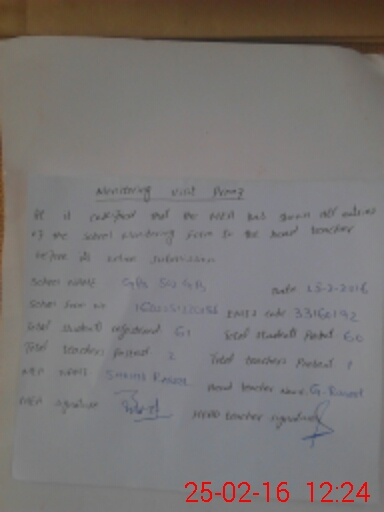 Monitoring visit Proof
It is certified that the MEA has shown all entries
of the school monitoring form to the head teacher
before its online submission
School Name GPS Date 25-2-2016
School EMIS code
Total students registered 61 Total students Present 60
Total teachers Posted 2 Total teachers Present 1
MEA Name Rasool Head teacher Name G. Rasool
MEA signature Head teacher signature
25-02-16 12:24